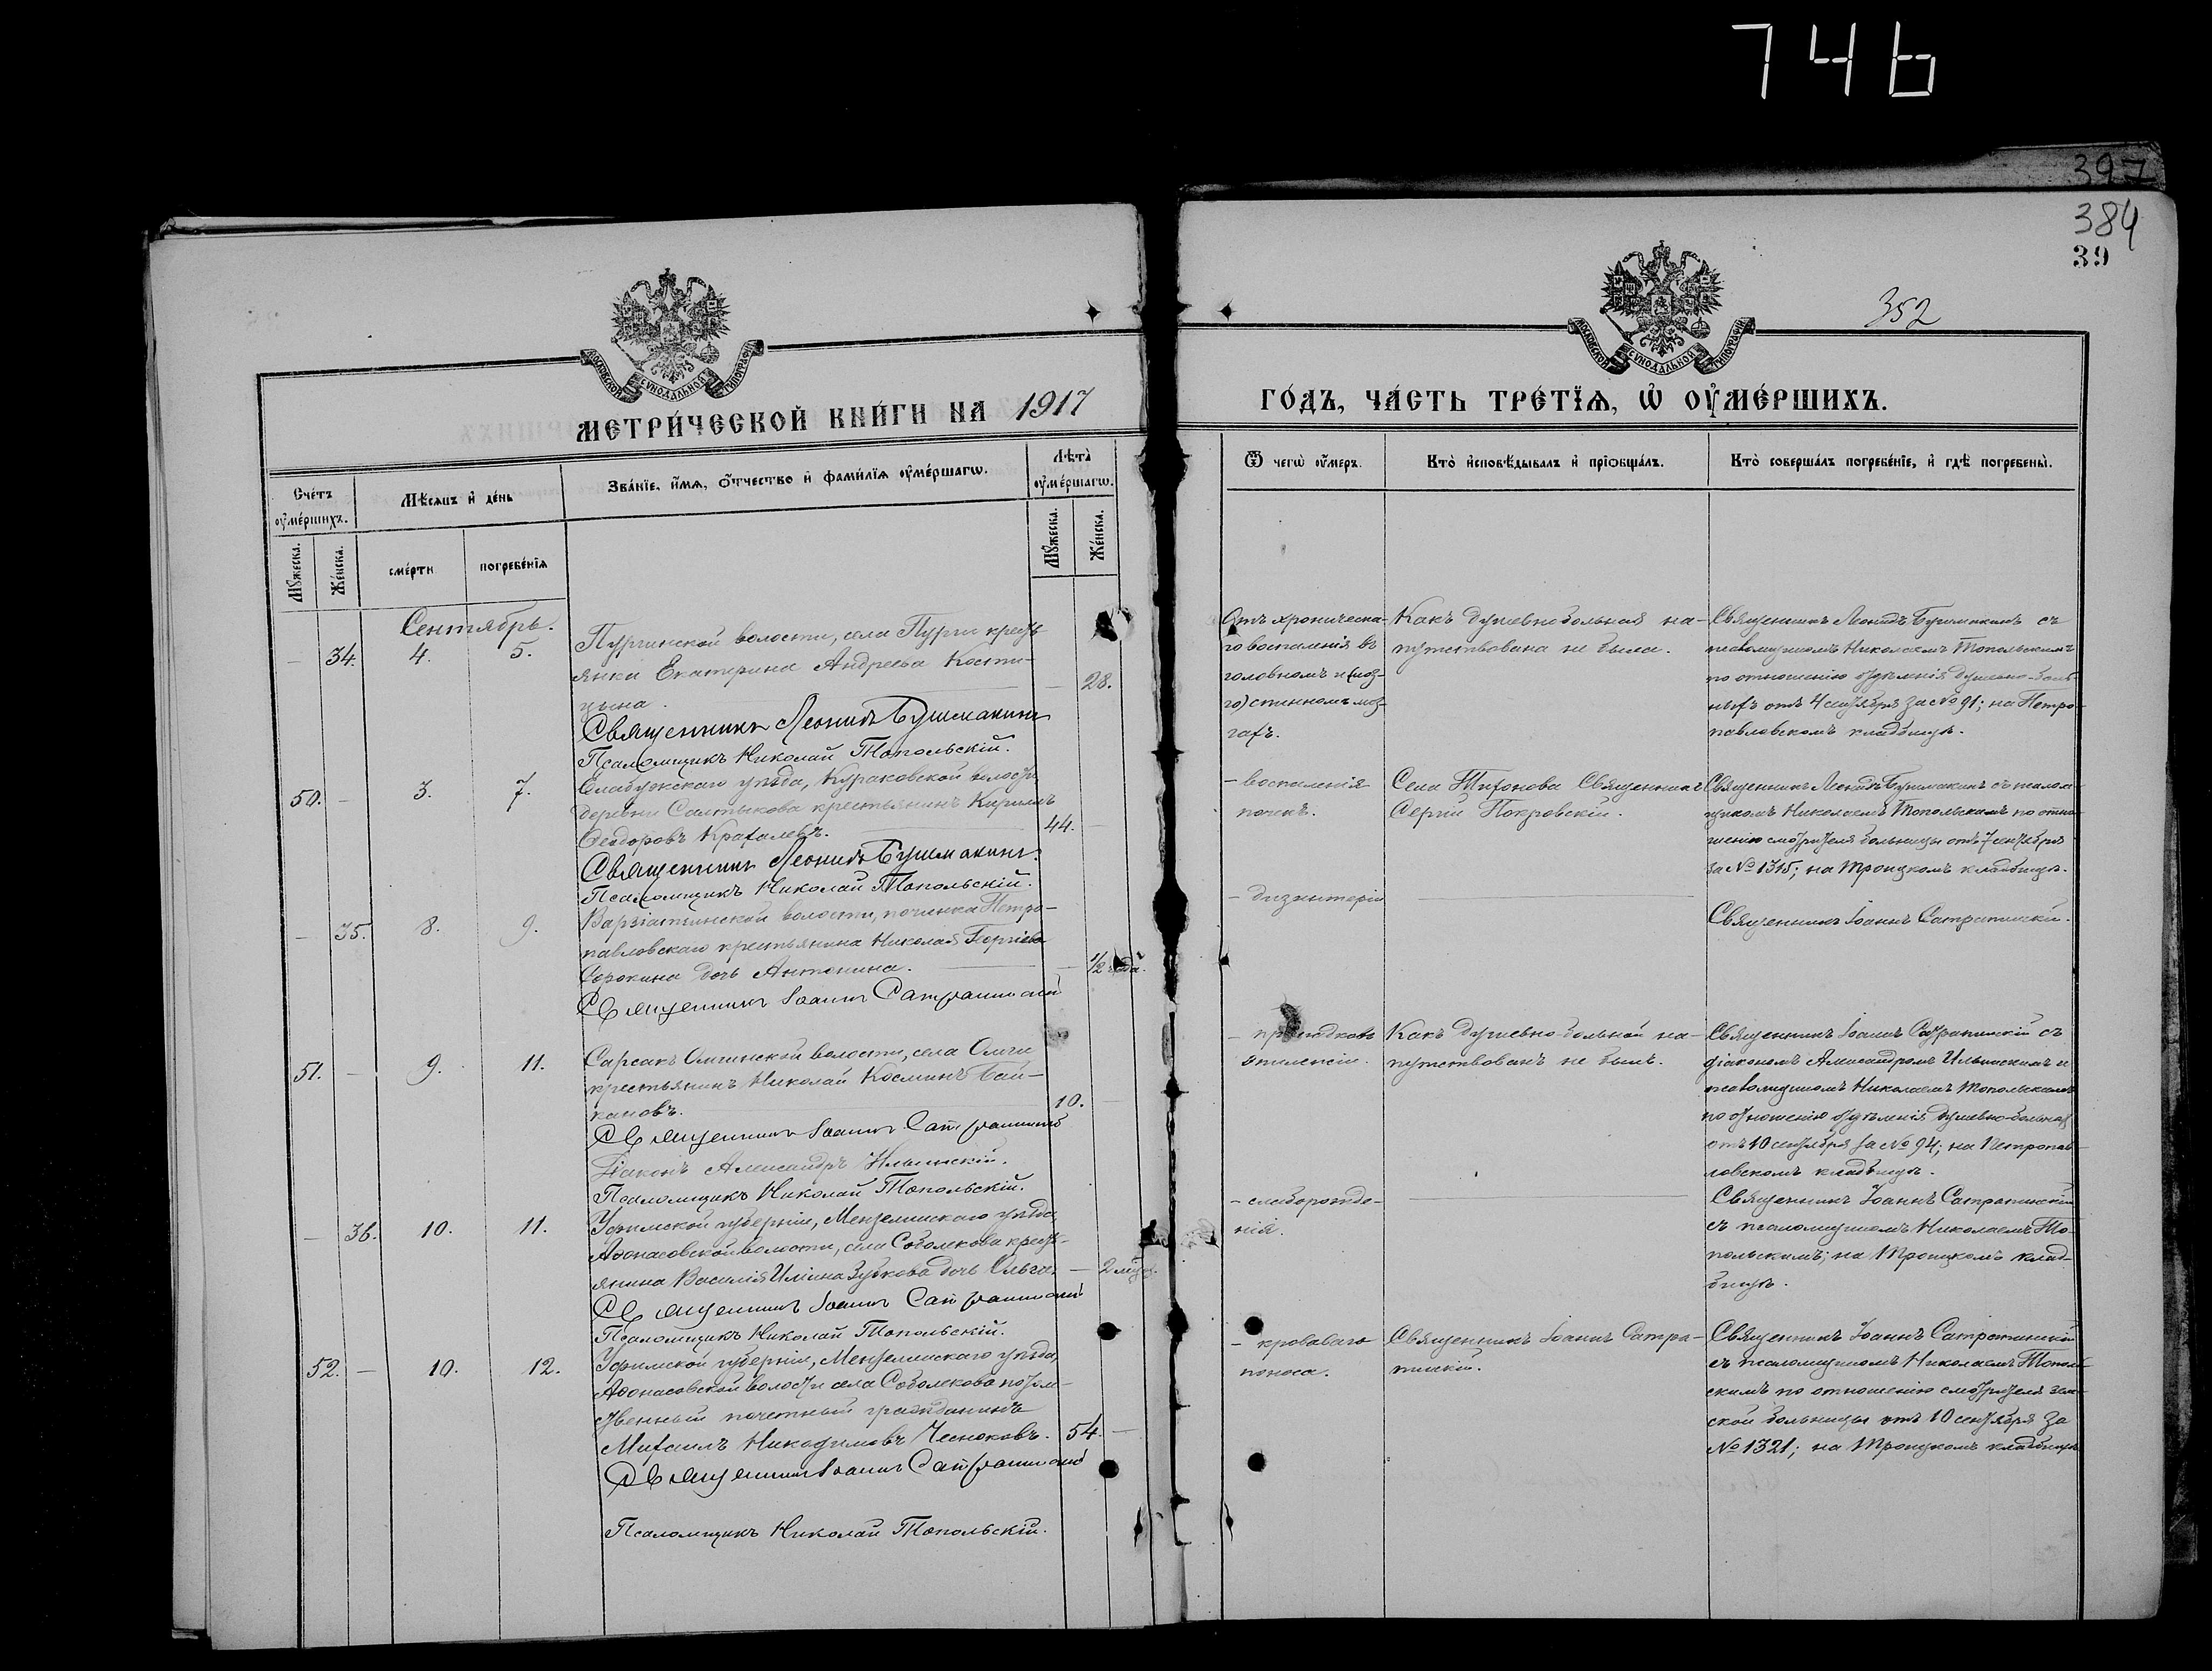 746
397
384
39
352
МОСКОВСКОЙ СѴНОДАЛЬНОЙ ТИПОГРАФІИ
МОСКОВСКОЙ СѴНОДАЛЬНОЙ ТИПОГРАФІИ
МЕТРИ́ЧЕСКОЙ КНИ́ГИ НА 1917
ГО́ДЪ, ЧА́СТЬ ТРЕ́ТЇѦ, Ѡ҆ ОУ҆МЕ́РШИХЪ.
Сче́тъ оу҆ме́ршихъ.
Мѣ́сяцъ и҆ де́нь
Зва́нїе, и҆́мѧ, ѻ҆́тчество и҆ фами́лїѧ оу҆ме́ршагѡ.
Лѣта̀ оу҆ме́ршагѡ.
Ѿ чегѡ̀ оу҆́меръ.
Кто̀ и҆сповѣ́дывалъ и҆ прїѻбща́лъ.
Кто̀ соверша́лъ погребе́нїе, и҆ гдѣ̀ погребены̀.
Мꙋ́жеска.
Же́нска.
сме́рти
погребе́нїѧ
Мꙋ́жеска.
Же́нска.
Сентябрь.
— 34. 4. 5.
Пургинской волости, села Пурги кресть-
янка Екатерина Андреева Кости-
цына. — 28.
Священникъ Леонидъ Бушмакинъ
Псаломщикъ Николай Топольскій.
Отъ хроническа-
го воспаленія въ
головномъ и (моз-
го) спинномъ моз-
гахъ.
Какъ душевнобольная на-
путствована не была.
Священникъ Леонидъ Бушмакинъ съ
псаломщикомъ Николаемъ Топольскимъ
по отношенію отдѣленія душевно-боль-
ныхъ отъ 4 сентября за № 91; на Петро-
павловскомъ кладбищѣ.
50. — 3. 7.
Елабужскаго уѣзда, Кураковской волости
деревни Салтыкова крестьянинъ Кириллъ
Ѳеодоровъ Крахалевъ. 44. —
Священникъ Леонидъ Бушмакинъ.
Псаломщикъ Николай Топольскій.
— воспаленія
почекъ.
Села Тифонова Священникъ
Сергій Покровскій.
Священникъ Леонидъ Бушмакинъ съ псалом-
щикомъ Николаемъ Топольскимъ по отно-
шенію смотрителя больницы отъ 7 сентября
за № 1315; на Троицкомъ кладбищѣ.
— 35. 8. 9.
Варзіятчинской волости, починка Петро-
павловскаго крестьянина Николая Георгіева
Сорокина дочь Антонина. — 1/2 года.
Священникъ Іоаннъ Сатрапинскій
— дизентеріи
Священникъ Іоаннъ Сатрапинскій.
51. — 9. 11.
Сарсакъ Омгинской волости, села Омги
крестьянинъ Николай Косминъ Бай-
кановъ. 10. —
Священникъ Іоаннъ Сатрапинскій
Діаконъ Александръ Ильинскій.
Псаломщикъ Николай Топольскій.
— припадковъ
эпилепсіи.
Какъ душевно-больной на-
путствованъ не былъ.
Священникъ Іоаннъ Сатрапинскій съ
діакономъ Александромъ Ильинскимъ и
псаломщикомъ Николаемъ Топольскимъ
по отношенію отдѣленія душевно-больныхъ
отъ 10 сентября за № 94; на Петропав-
ловскомъ кладбищѣ.
— 36. 10. 11.
Уфимской губерніи, Мензелинскаго уѣзда,
Аѳонасовской волости, села Соболекова кресть-
янина Василія Ильина Зубкова дочь Ольга. — 2 мѣс.
Священникъ Іоаннъ Сатрапинскій
Псаломщикъ Николай Топольскій.
— слаборожде-
нія.
Священникъ Іоаннъ Сатрапинскій
съ псаломщикомъ Николаемъ То-
польскимъ; на Троицкомъ клад-
бищѣ.
52. — 10. 12.
Уфимской губерніи, Мензелинскаго уѣзда,
Аѳонасовской волости села Соболекова потом-
ственный почетный гражданинъ
Михаилъ Никодимовъ Чесноковъ. 54. —
Священникъ Іоаннъ Сатрапинскій
Псаломщикъ Николай Топольскій.
— кроваваго
поноса.
Священникъ Іоаннъ Сатра-
пинскій.
Священникъ Іоаннъ Сатрапинскій
съ псаломщикомъ Николаемъ Тополь-
скимъ по отношенію смотрителя зем-
ской больницы отъ 10 сентября за
№ 1321; на Троицкомъ кладбищѣ